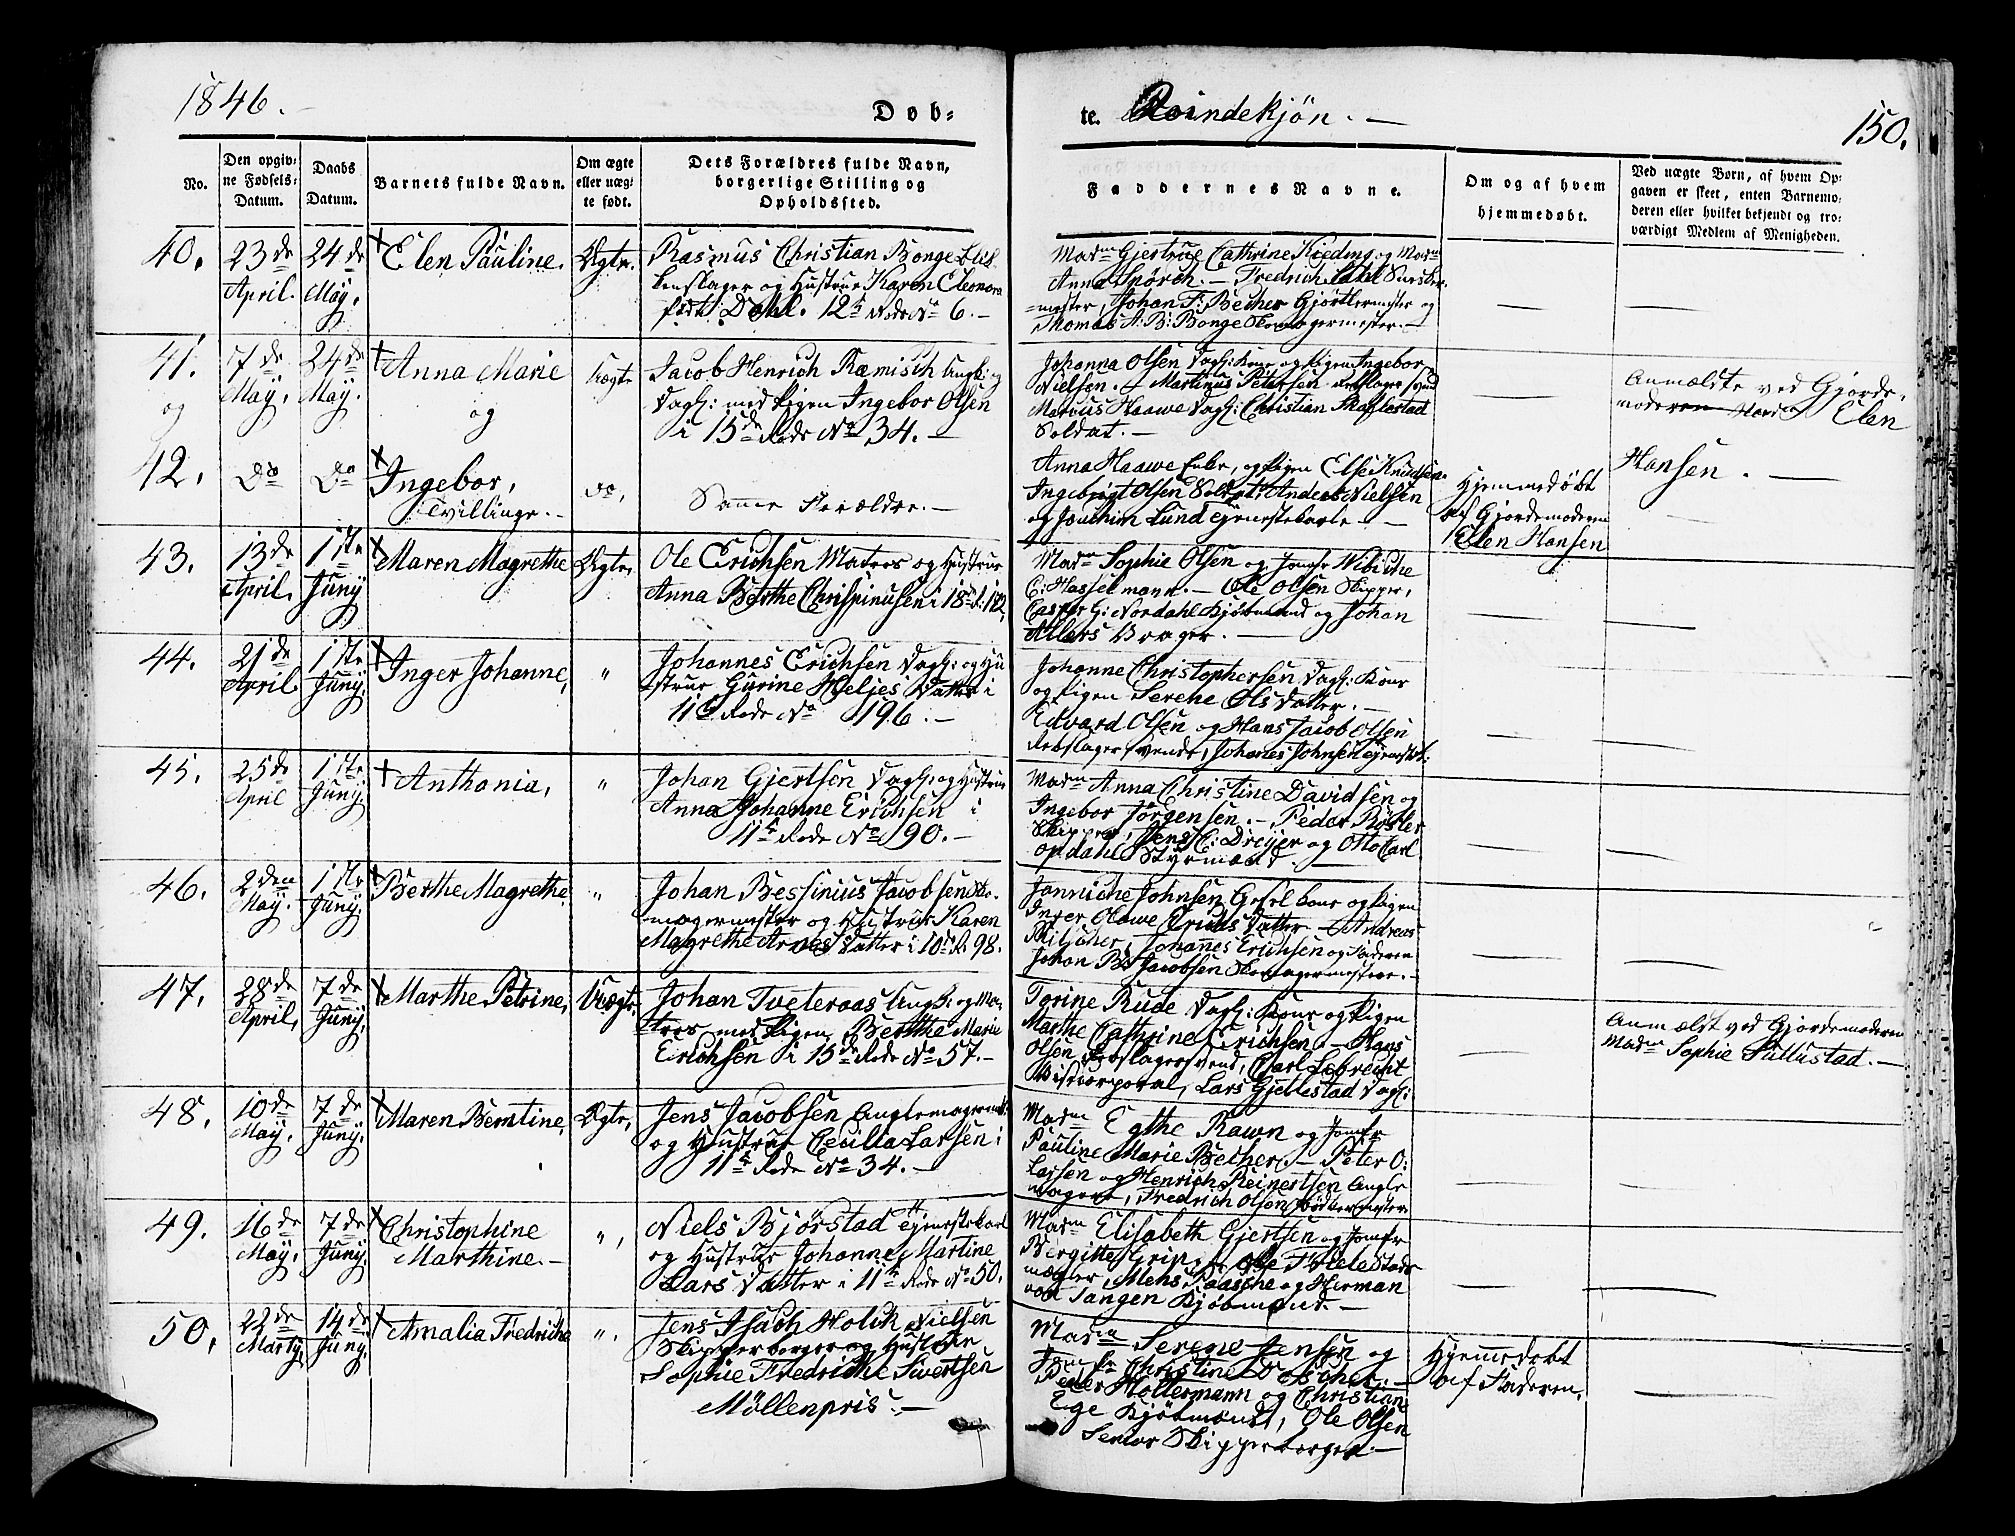 1846.
Døb-
te. Qvindekjøn.
150.
No.
Den opgiv-
ne Fødsels-
Datum.
Daabs
Datum.
Barnets fulde Navn.
Om ægte
eller uæg-
te født.
Dets Forældres fulde Navn,
borgerlige Stilling og
Opholdssted.
Faddernes Navne.
Om og af hvem
hjemmedøbt.
Ved uægte Børn, af hvem Op-
gaven er skeet, enten Barnemo-
deren eller hvilket bekjendt og tro-
værdigt Medlem af Menigheden.
40. 23de April. 24de May. Elen Pauline. Ægte.
Rasmus Christian Bonge
og Hustrue Karen Eleonora
født Dahl. 12te Rode No 6.
Madm Gjertrue Cathrine Kieding og Madm
Anna Spörch. Fredrich
mester, Johan F: Becher Gjørtlermester og
Thomas A: B: Bonge Skomagermester.
41. 7de May. 24de May. Anna Marie Uægte
og
og
Jacob Henrich Ræmisch Ungk: og
Dagl: med Pigen Ingebor Olsen
i 15de Rode No 34.
Johanna Olsen Dagl: Kone og Pigen Ingebor
Nielsen. Martinus Petersen Rebslagersvend
Marcus Haawe Dagl: Christian Skaflestad
Soldat.
Anmældte ved Gjorde-
moderen Elen
Hansen.
42. Do Do Ingebor, do,
Tvillinge.
Samme Forældre.
Anna Haawe Enke, og Pigen Else Knudsen
Ingebrigt Olsen Soldat, Anders Nielsen
og Joachim Lund tjenestekarle
Hjemmedøbt
af Gjordemoderen
Elen Hansen
43. 13de April. 1ste Juny Maren Magrethe Ægte.
Ole Erichsen Matros og Hustrue
Anna Berthe Chrispinusen i 18de R:
Madm Sophie Olsen og Jomfr Wibiche
E: Hasselmann. Ole Olsen Skipper,
Casper G: Nordahl Kjøbmand og Johan
Allers Brager.
44. 21de April 1ste Juny. Inger Johanne, "
Johannes Erichsen Dagl: og Hu
strue Gurine Heljes Datter i
11te Rode No 196.
Johanne Christophersen Dagl: Kone
og Pigen Serene Ols Datter.
Edvard Olsen og Hans Jacob Olsen
Rebslagersvende, Johanes Johnsen tjenestek:
45. 25de April 1ste Juny Anthonia, "
Johan Gjertsen Dagl: og Hustrue
Anna Johanne Erichsen i
11te Rode No 90.
Madm Anna Christine Davidsen og
Ingebor Jörgensen. Peder Rösler
Skipper, Jens E: Dreyer og Otto Carl
Opdahl Styrmænd.
46. 2den May. 1ste Juny. Berthe Magrethe, "
Johan Bessinius Jacobsen Sko-
magermester og Hustrue Karen
Magrethe Arnes Datter i 10de R. 98.
Janniche Johnsen Gesel kone og Pigen
Inger Olawe Erichs Datter. Andreas
Johanes Erichsen og Faderen
Johan B: Jacobsen Skomagermestere.
47. 28de April, 7de Juny. Marthe Petrine, Uægte.
Johan Tveteraas Ungk: og Ma-
tros med Pigen Berthe Marie
Erichsen i 15de Rode No 57.
Torine Rude Dagl: Kone og Pigen
Marthe Cathrine Erichsen. Hans
Olsen Rebslagersvend, Carl Lebrecht
Vicecorporal, Lars Gjetlestad Dagl:
Anmældt ved Gjordemoderen
Madm Sophie Tullustad.
48. 10de May. 7de Juny. Maren Berntine, Ægte,
Jens Jacobsen Anglemagermester
og Hustrue Cecilia Larsen i
11te Rode No 34.
Madm Egthe Rawn og Jomfr
Pauline Marie Becher. Peter O:
Larsen og Henrich Reinertsen Angle
magere, Fredrich Olsen Bødkermester
49. 16de May. 7de Juny. Christophine "
Marthine.
Niels Bjørstad tjenestekarl
og Hustrue Johanne Martine
Lars Datter i 11te Rode No 50.
Madm Elisabeth Gjertsen og Jomfr
Bergitte Grip. Ole
mægler, Mens Paasche og Herman
von Tangen Kjøbmænd.
50. 22de Marty, 14de Juny. Amalia Fredricha ".
Jens Isach Holck Nielsen
Skipperborger og Hustrue
Sophie Fredriche Sivertsen
Möllenpris.
Madm Serene Jensen og
Jomfr Christine Döscher.
Peder Moltermann og Christian
Ege Kjøbmænd, Ole Olsen
Senior Skipperborger.
Hjemmedøbt
af Faderen.